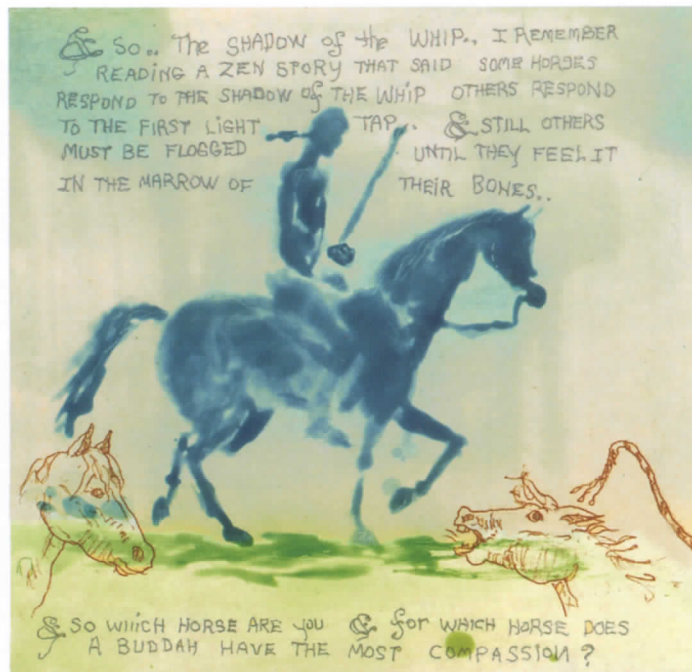 & SO.. THE SHADOW of the WHIP.. I REMEMBER
READING A ZEN STORY THAT SAID SOME HORSES
RESPOND TO THE SHADOW of THE WHIP OTHERS RESPOND
TO THE FIRST LIGHT TAP.. & STILL OTHERS
MUST BE FLOGGED UNTIL THEY FEEL IT
IN THE MARROW OF THEIR BONES..
& SO WHICH HORSE ARE YOU & for WHICH HORSE DOES
A BUDDAH HAVE THE MOST COMPASSION?